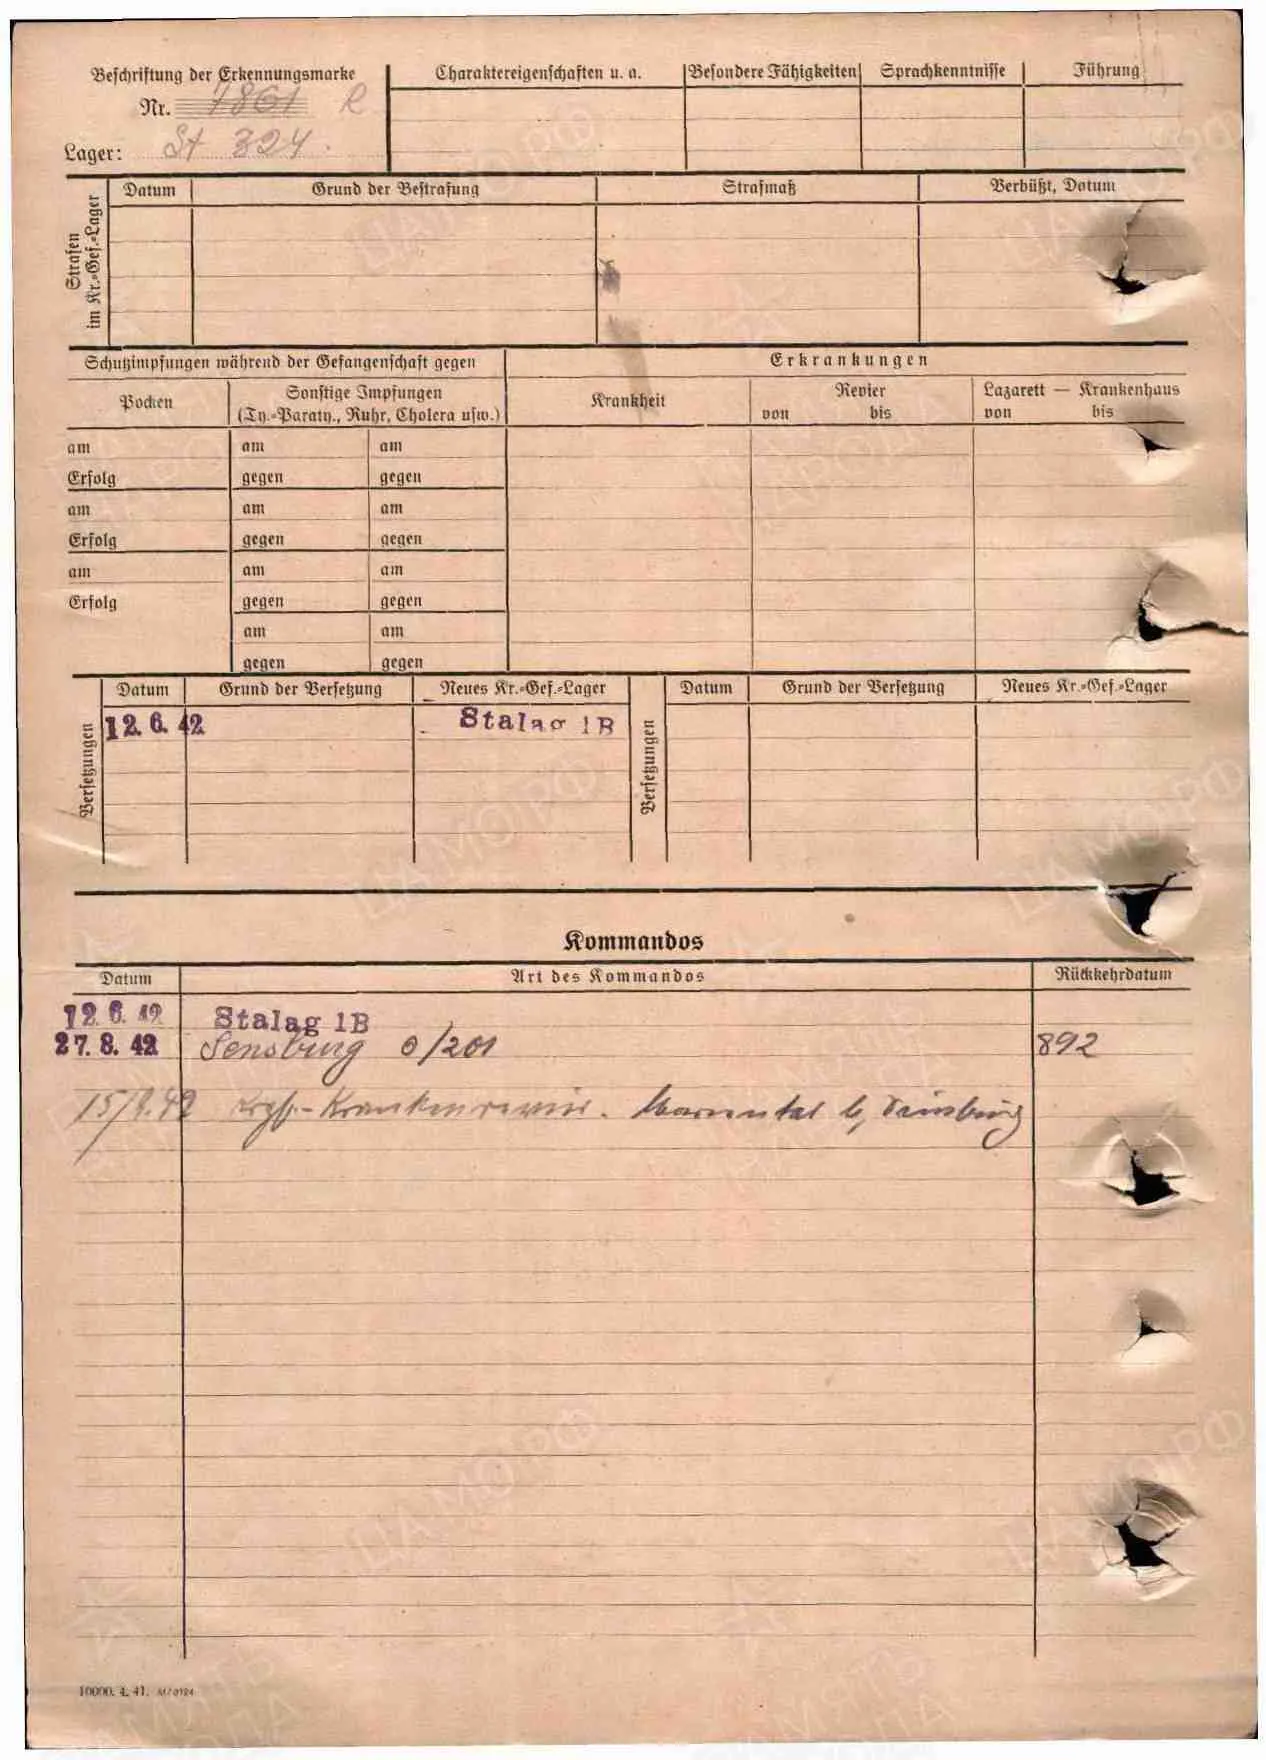 Beschriftung der Erkennungsmarke
Nr. 7861 R
Lager: St 324.
Charaktereigenschaften u. a.
Besondere Fähigkeiten
Sprachkenntnisse
Führung
Strafen
im Kr.-Gef.-Lager
Datum Grund der Bestrafung Strafmaß Verbüßt, Datum
Schutzimpfungen während der Gefangenschaft gegen
Erkrankungen
Pocken
Sonstige Impfungen
(Ty.-Paraty., Ruhr, Cholera usw.)
Krankheit
Revier
von bis
Lazarett — Krankenhaus
von bis
am am am
Erfolg gegen gegen
am am am
Erfolg gegen gegen
am am am
Erfolg gegen gegen
am am
gegen gegen
Versetzungen
Datum Grund der Versetzung Neues Kr.-Gef.-Lager
12. 6. 42 Stalag 1B
Versetzungen
Datum Grund der Versetzung Neues Kr.-Gef.-Lager
Kommandos
Datum Art des Kommandos Rückkehrdatum
12. 6. 42 Stalag 1B
27. 8. 42 Sensburg 0/201 892
Krgf.-Krankenrevier. b,
10000. 4. 41.
ЦАМО РФ